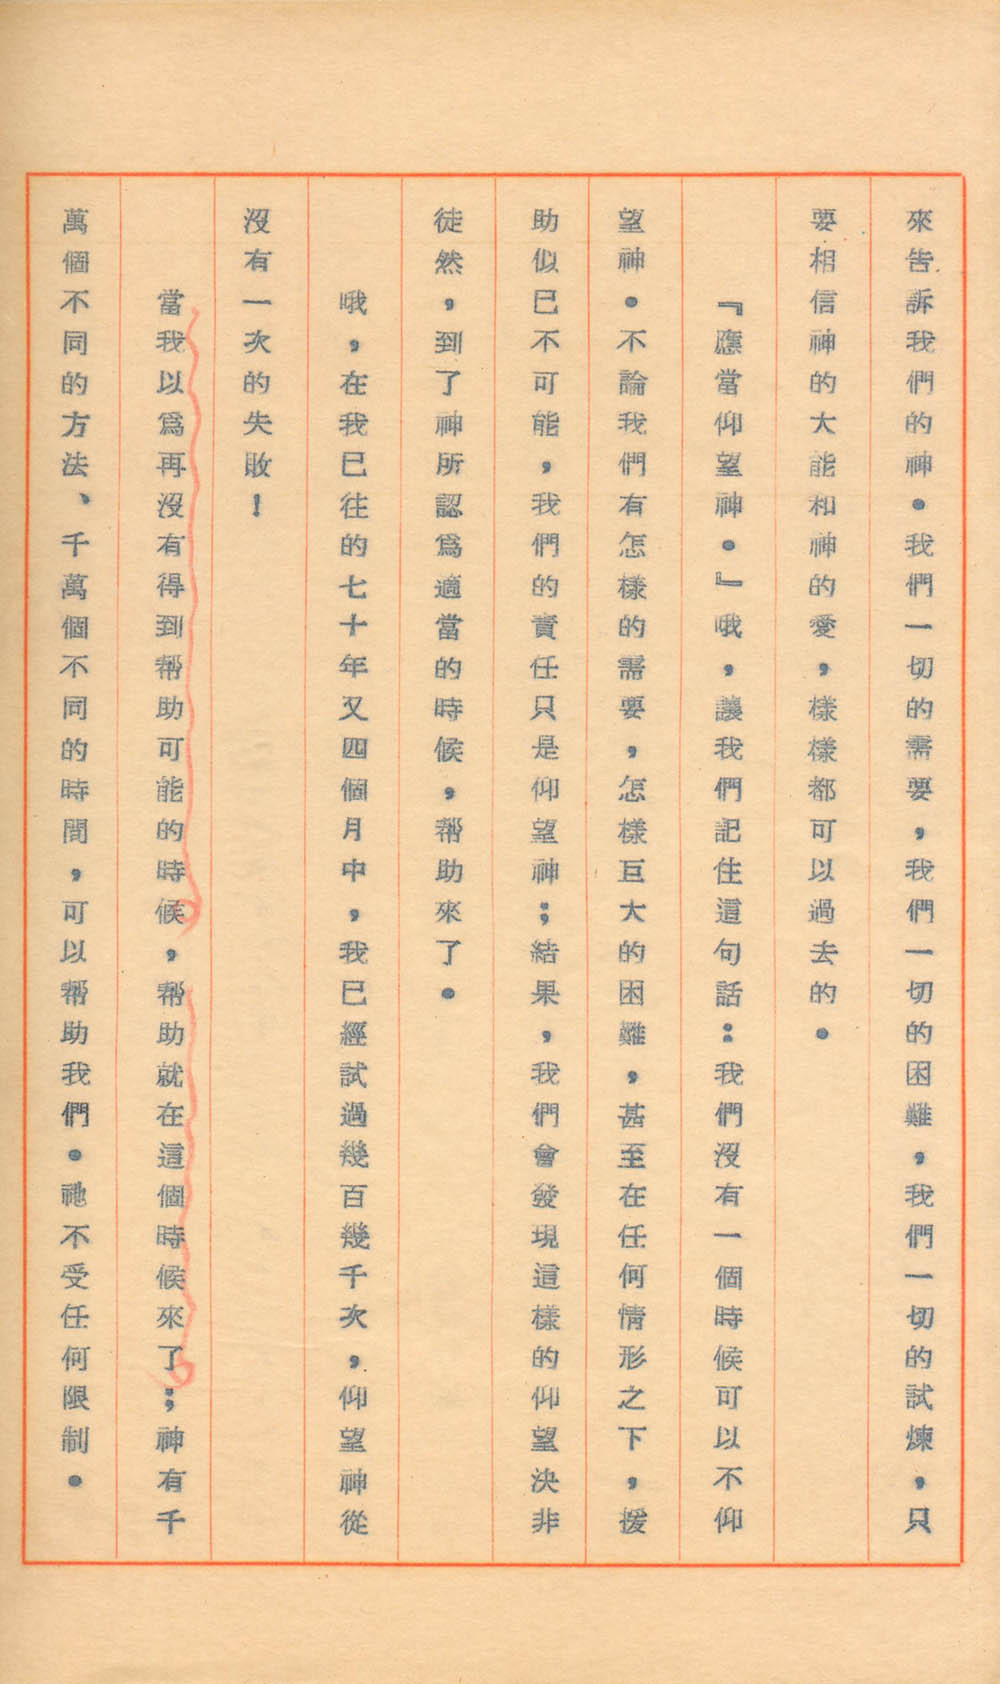 來告訴我們的神。我們一切的需要，我們一切的困難，我們一切的試煉，只
要相信神的大能和神的愛，樣樣都可以過去的。
『應當仰望神。』哦，讓我們記住這句話：我們沒有一個時候可以不仰
望神。不論我們有怎樣的需要，怎樣巨大的困難，甚至在任何情形之下，援
助似已不可能，我們的責任只是仰望神；結果，我們會發現這樣的仰望決非
徒然，到了神所認爲適當的時候，幇助來了。
哦，在我已往的七十年又四個月中，我已經試過幾百幾千次，仰望神從
沒有一次的失敗！
當我以爲再沒有得到幇助可能的時候，幇助就在這個時候來了；神有千
萬個不同的方法、千萬個不同的時間，可以幇助我們。祂不受任何限制。